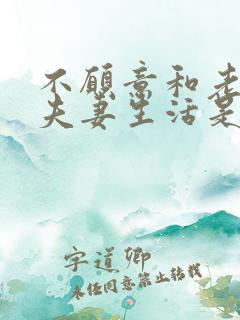 不愿意和老
夫妻生活是
字道卿
未经同意禁止转载